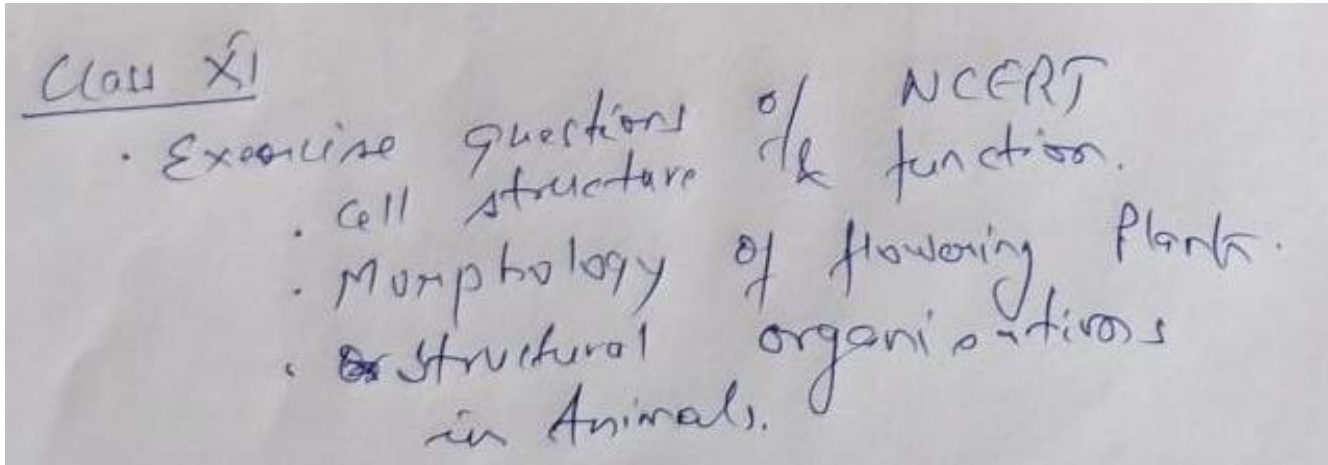 Class XI
· Exercise questions of NCERT
· Cell structure & function.
· Morphology of flowering Plants.
· Structural organisations
in Animals.